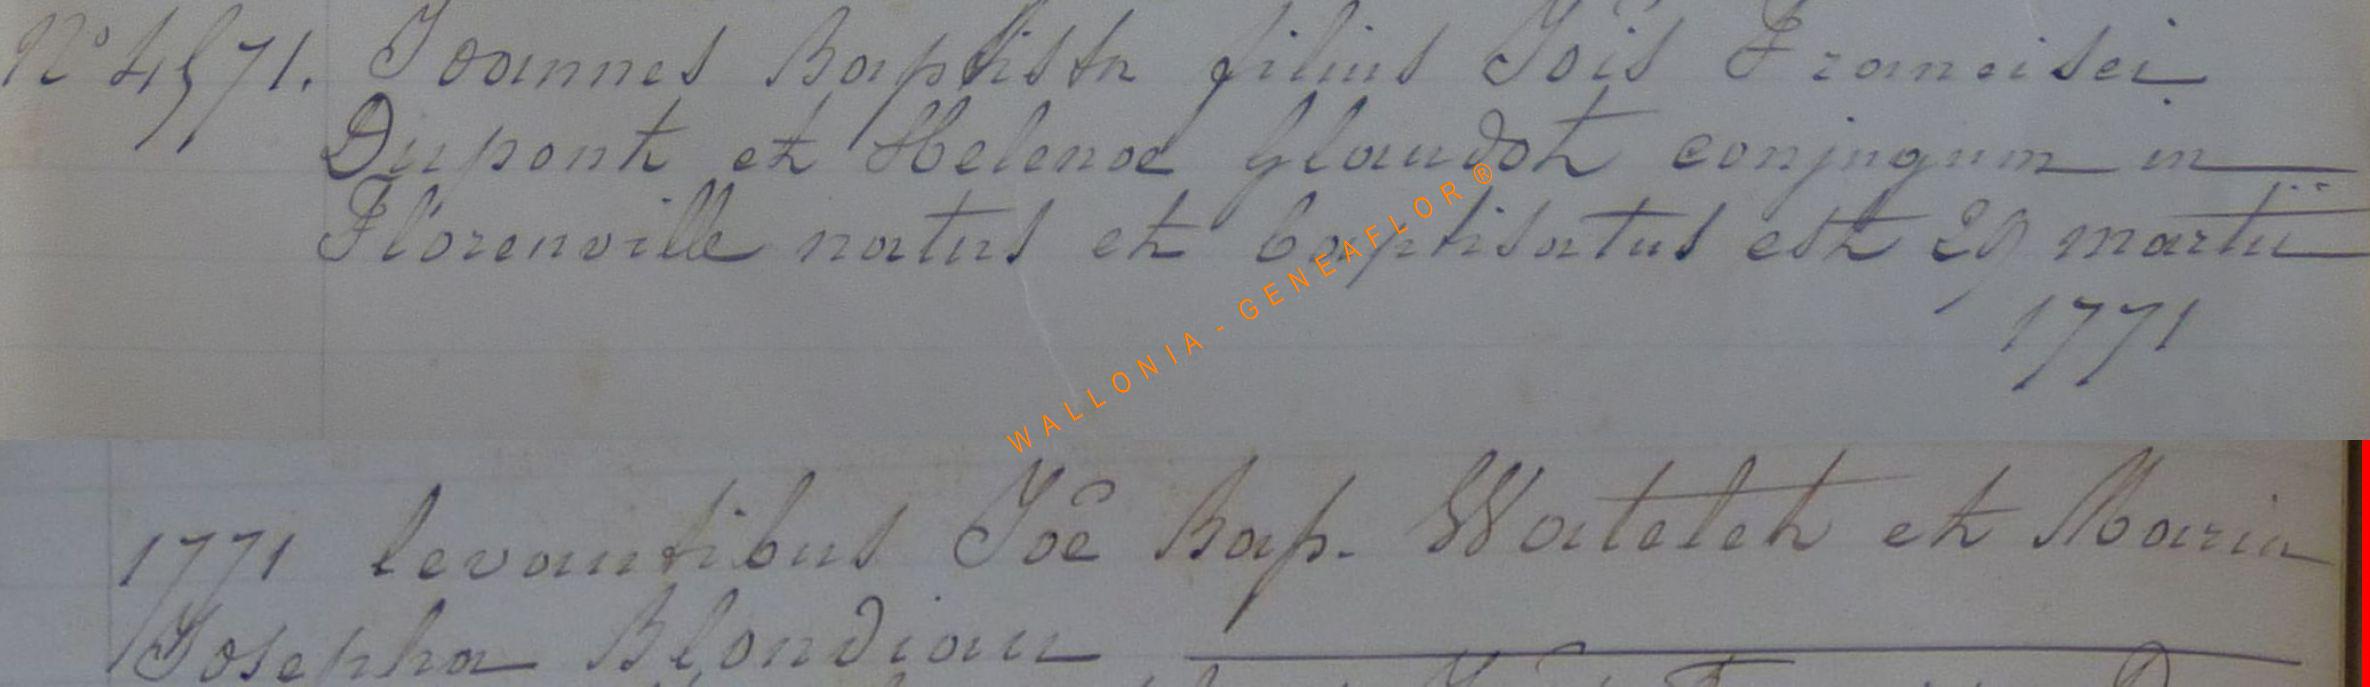 N° 4571. Joannes Baptista filius Jois Francisci
Dupont et Helenae Glaudot conjugum in
Florenville natus et baptisatus est 29 martii
1771
WALLONIA - GENEAFLOR ®
1771 levantibus Joê Bap. Watelet et Maria
Josepha Blondiau